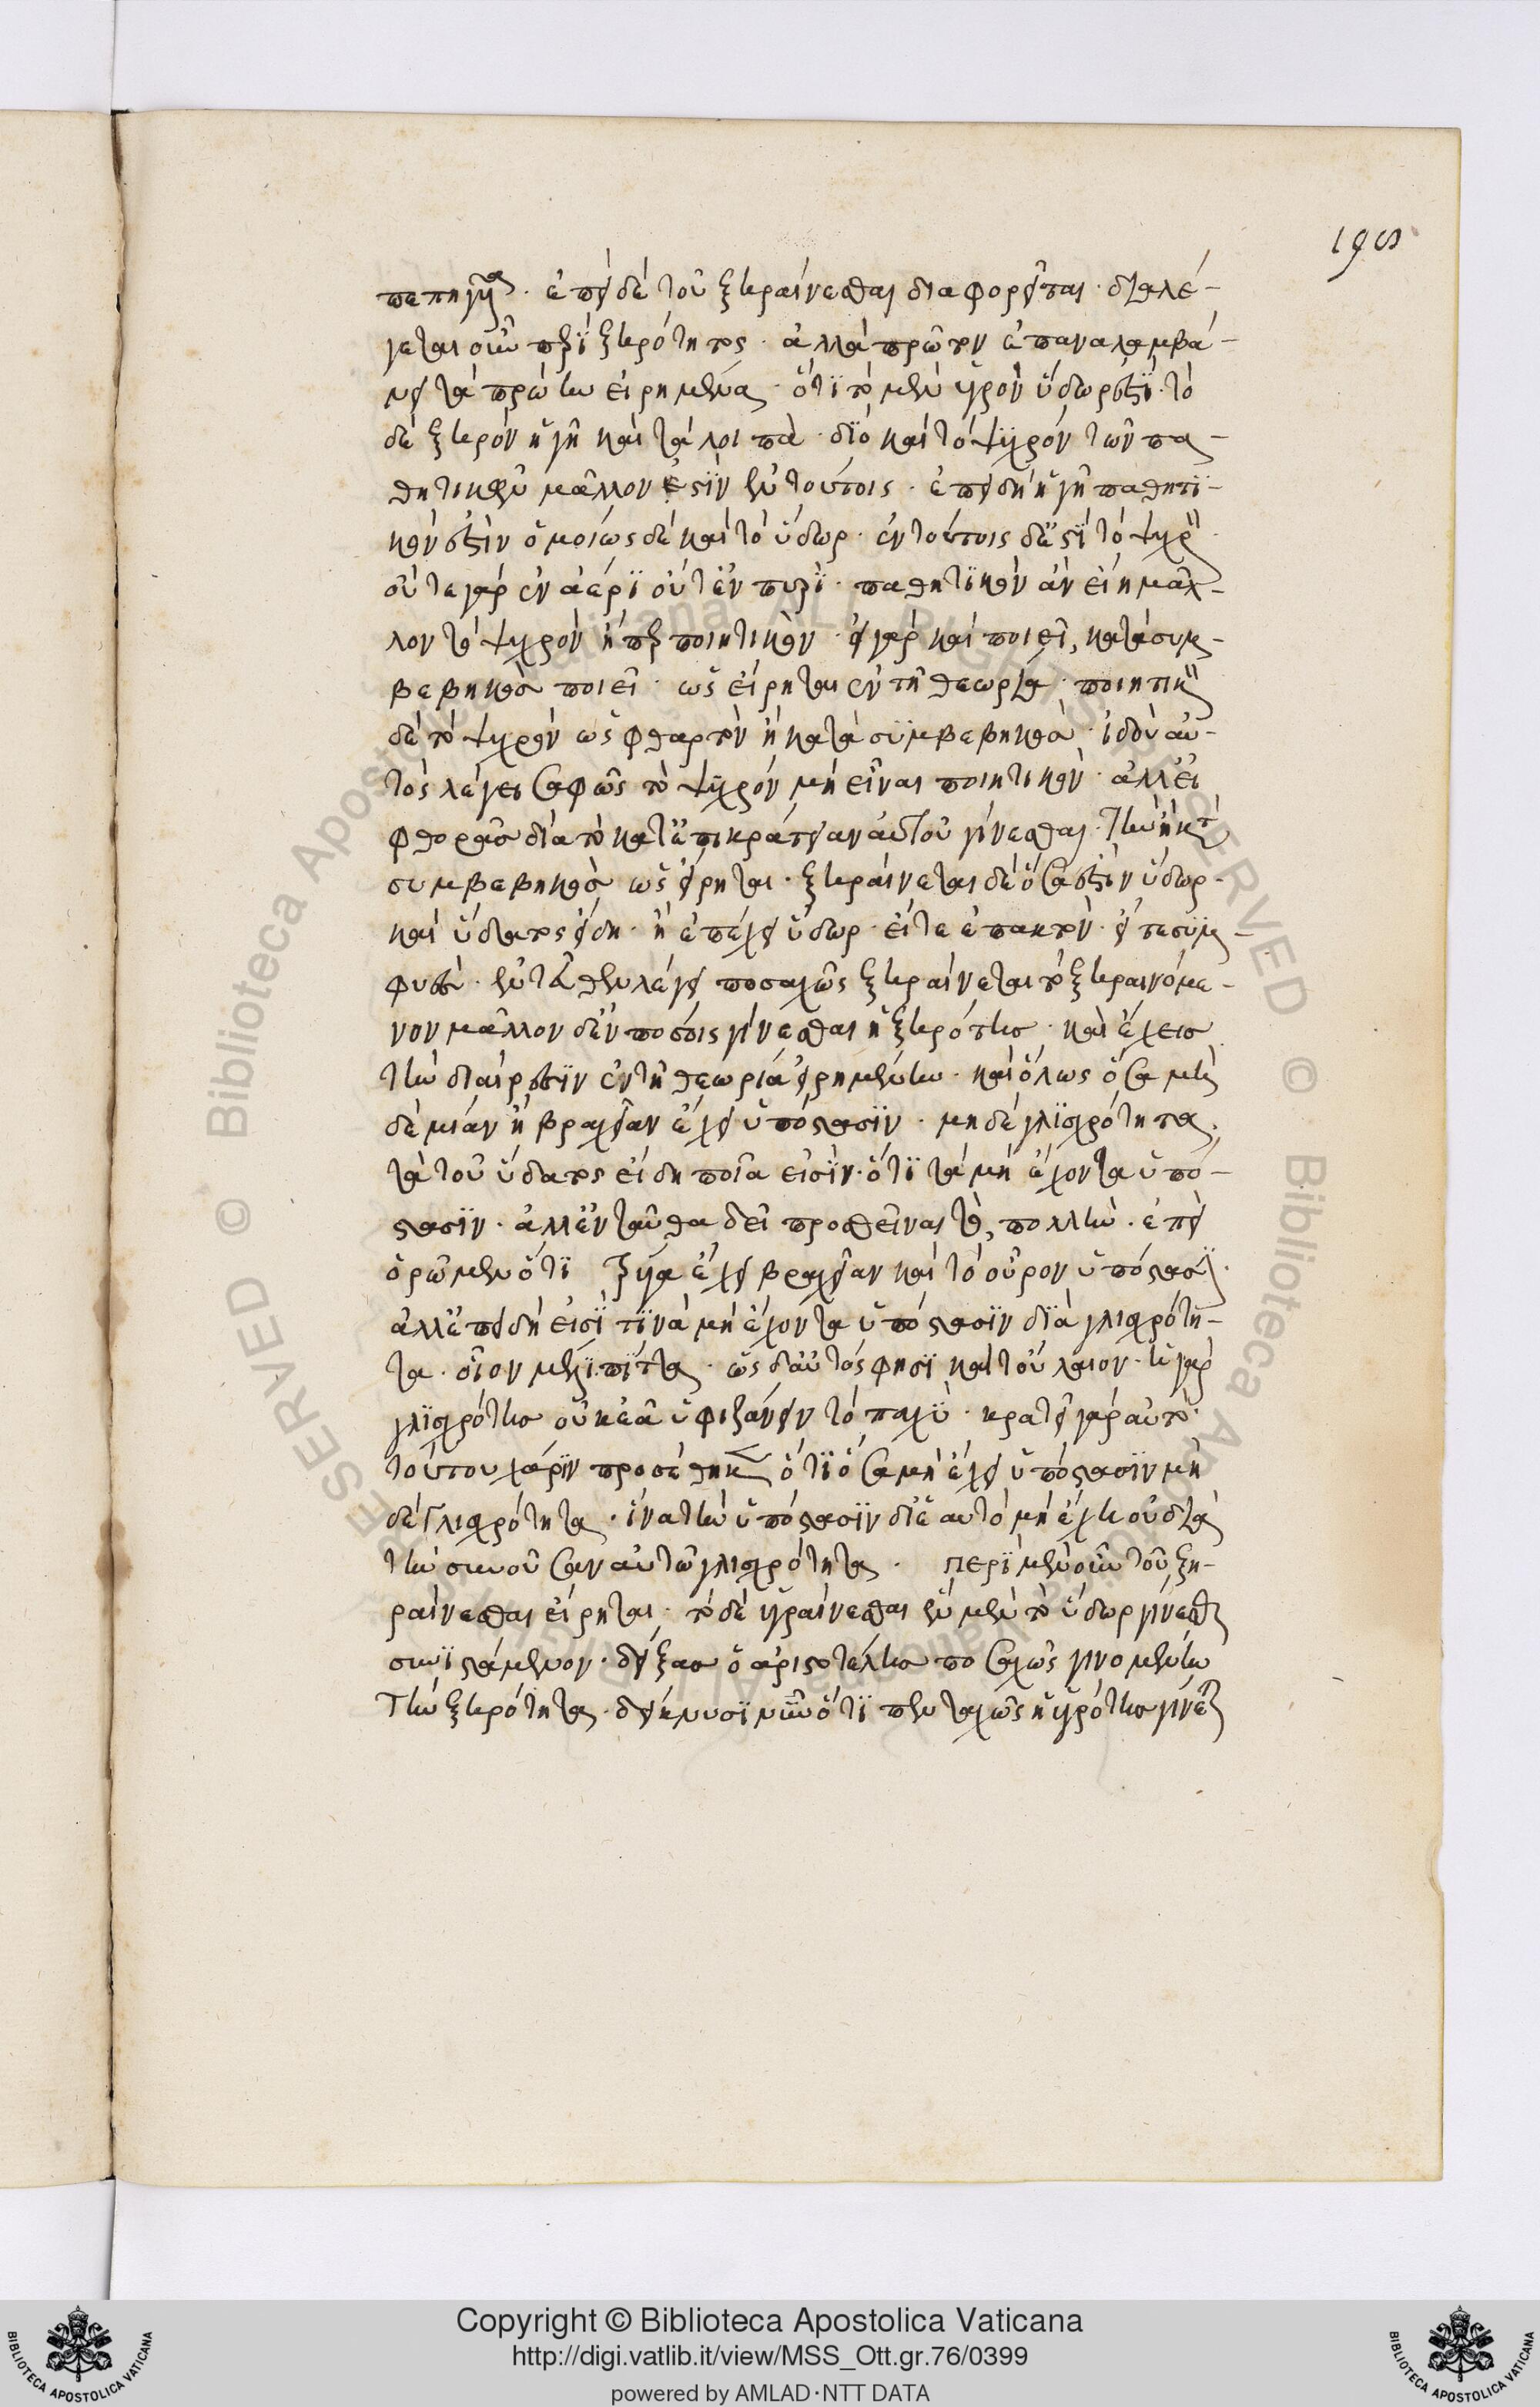 195
πεπηγέναι. ἐπεὶ δὲ τοῦ ξηραίνεσθαι διαφορεῖται. διαλέ-
γεται οὖν περὶ ξηρότητος. ἀλλὰ πρῶτον ἐπαναλαμβά-
νει τὰ πρώην εἰρημένα. ὅτι τὸ μὲν ὑγρὸν ὕδωρ ἐστὶ. τὸ
δὲ ξηρὸν ἡ γῆ καὶ τὰ λοιπὰ. διὸ καὶ τὸ ψυχρὸν τῶν πα-
θητικῶν μᾶλλον ἐστὶν ἐν τούτοις. ἐπειδὴ ἡ γῆ παθητι-
κὸν ἐστὶν ὁμοίως δὲ καὶ τὸ ὕδωρ. ἐν τούτοις δέ ἐστι τὸ ψυχρὸν
οὔτε γὰρ ἐν ἀέρι οὔτ' ἐν πυρὶ. παθητικὸν ἂν εἴη μᾶλ-
λον τὸ ψυχρὸν ἤπερ ποιητικὸν. εἰ γὰρ καὶ ποιεῖ, κατὰ συμ-
βεβηκὸς ποιεῖ. ὡς εἴρηται ἐν τῇ θεωρία. ποιητικὸν
δὲ τὸ ψυχρὸν ὡς φθαρτὸν ἢ κατὰ συμβεβηκὸς. ἰδοὺ αὐ-
τὸς λέγει σαφῶς τὸ ψυχρὸν μὴ εἶναι ποιητικὸν. ἀλλ' εἰ
φθορὰς διὰ τὸ κατ' ἐπικράτειαν αὐτοῦ γίνεσθαι. τὴν ἢ κατὰ
συμβεβηκὸς ὡς εἴρηται. ξηραίνεται δὲ ὅσα ἐστὶν ὕδωρ.
καὶ ὕδατος εἴδη. ἢ ἐπέχει ὕδωρ. εἴτε ἐπακτὸν. εἴτε συμ-
φυὲς. ἐνταῦθα λέγει ποσαχῶς ξηραίνεται τὸ ξηραινόμε-
νον μᾶλλον δ' ἐν ποσοῖς γίνεσθαι ἡ ξηρότης. καὶ ἔχεις
τὴν διαίρεσιν ἐν τῇ θεωρία εἰρημένην. καὶ ὅλως ὅσα μη
δὲ μίαν ἢ βραχεῖαν ἔχει ὑπόστασιν. μηδὲ γλισχρότητα,
τὰ τοῦ ὕδατος εἴδη ποῖα εἰσὶν. ὅτι τὰ μὴ ἔχοντα ὑπό-
στασιν. ἀλλ' ἐνταῦθα δεῖ προσθεῖναι τὸ, πολλὴν. ἐπεὶ
ὁρῶμεν ὅτι τινὰ ἔχει βραχεῖαν καὶ τὸ οὖρον ὑπόστασιν.
ἀλλ' ἐπειδὴ εἰσὶ τινὰ μὴ ἔχοντα ὑπόστασιν διὰ γλισχρότη-
τα. οἷον μέλι πίττα. ὡς δ' αὐτὸς φησὶ καὶ τοὔλαιον. ἡ γὰρ
γλισχρότης οὐκ ἐᾶ ὑφιζάνειν τὸ παχὺ. κρατεῖ γὰρ αὐτὸ.
τούτου χάριν προσέθηκεν ὅτι ὅσα μὴ ἔχει ὑπόστασιν μη
δὲ γλισχρότητα. ἵνα τὴν ὑπόστασιν δι' ἑαυτὸ μὴ ἔχη οὐ διὰ
τὴν συνοῦσαν αὐτῶ γλισχρότητα. περὶ μὲν οὖν τοῦ ξη-
ραίνεσθαι εἴρηται. τὸ δὲ ὑγραίνεσθαι ἓν μὲν τὸ ὕδωρ γίνεσθαι
συνιστάμενον. δείξας ὁ ἀριστοτέλης ποσαχῶς γινομένην
τὴν ξηρότητα. δείκνυσι νῦν ὅτι πενταχῶς ἡ ὑγρότης γίνεται
Copyright © Biblioteca Apostolica Vaticana
http://digi.vatlib.it/view/MSS_Ott.gr.76/0399
powered by AMLAD·NTT DATA